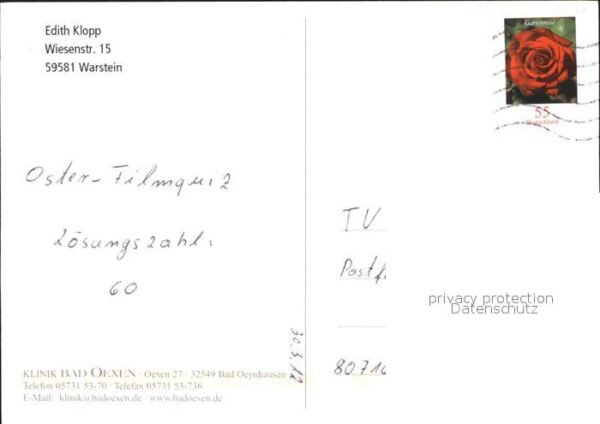 Edith Klopp
Wiesenstr. 15
59581 Warstein
Gartenrose
55
Deutschland
Oster-Filmquiz
Lösungszahl:
60
TV
Postf
privacy protection
Datenschutz
80710
30.3.12
KLINIK BAD OEXEN · Oexen 27 · 32549 Bad Oeynhausen
Telefon 05731 53-70 · Telefax 05731 53-736
E-Mail: klinik@badoexen.de · www.badoexen.de